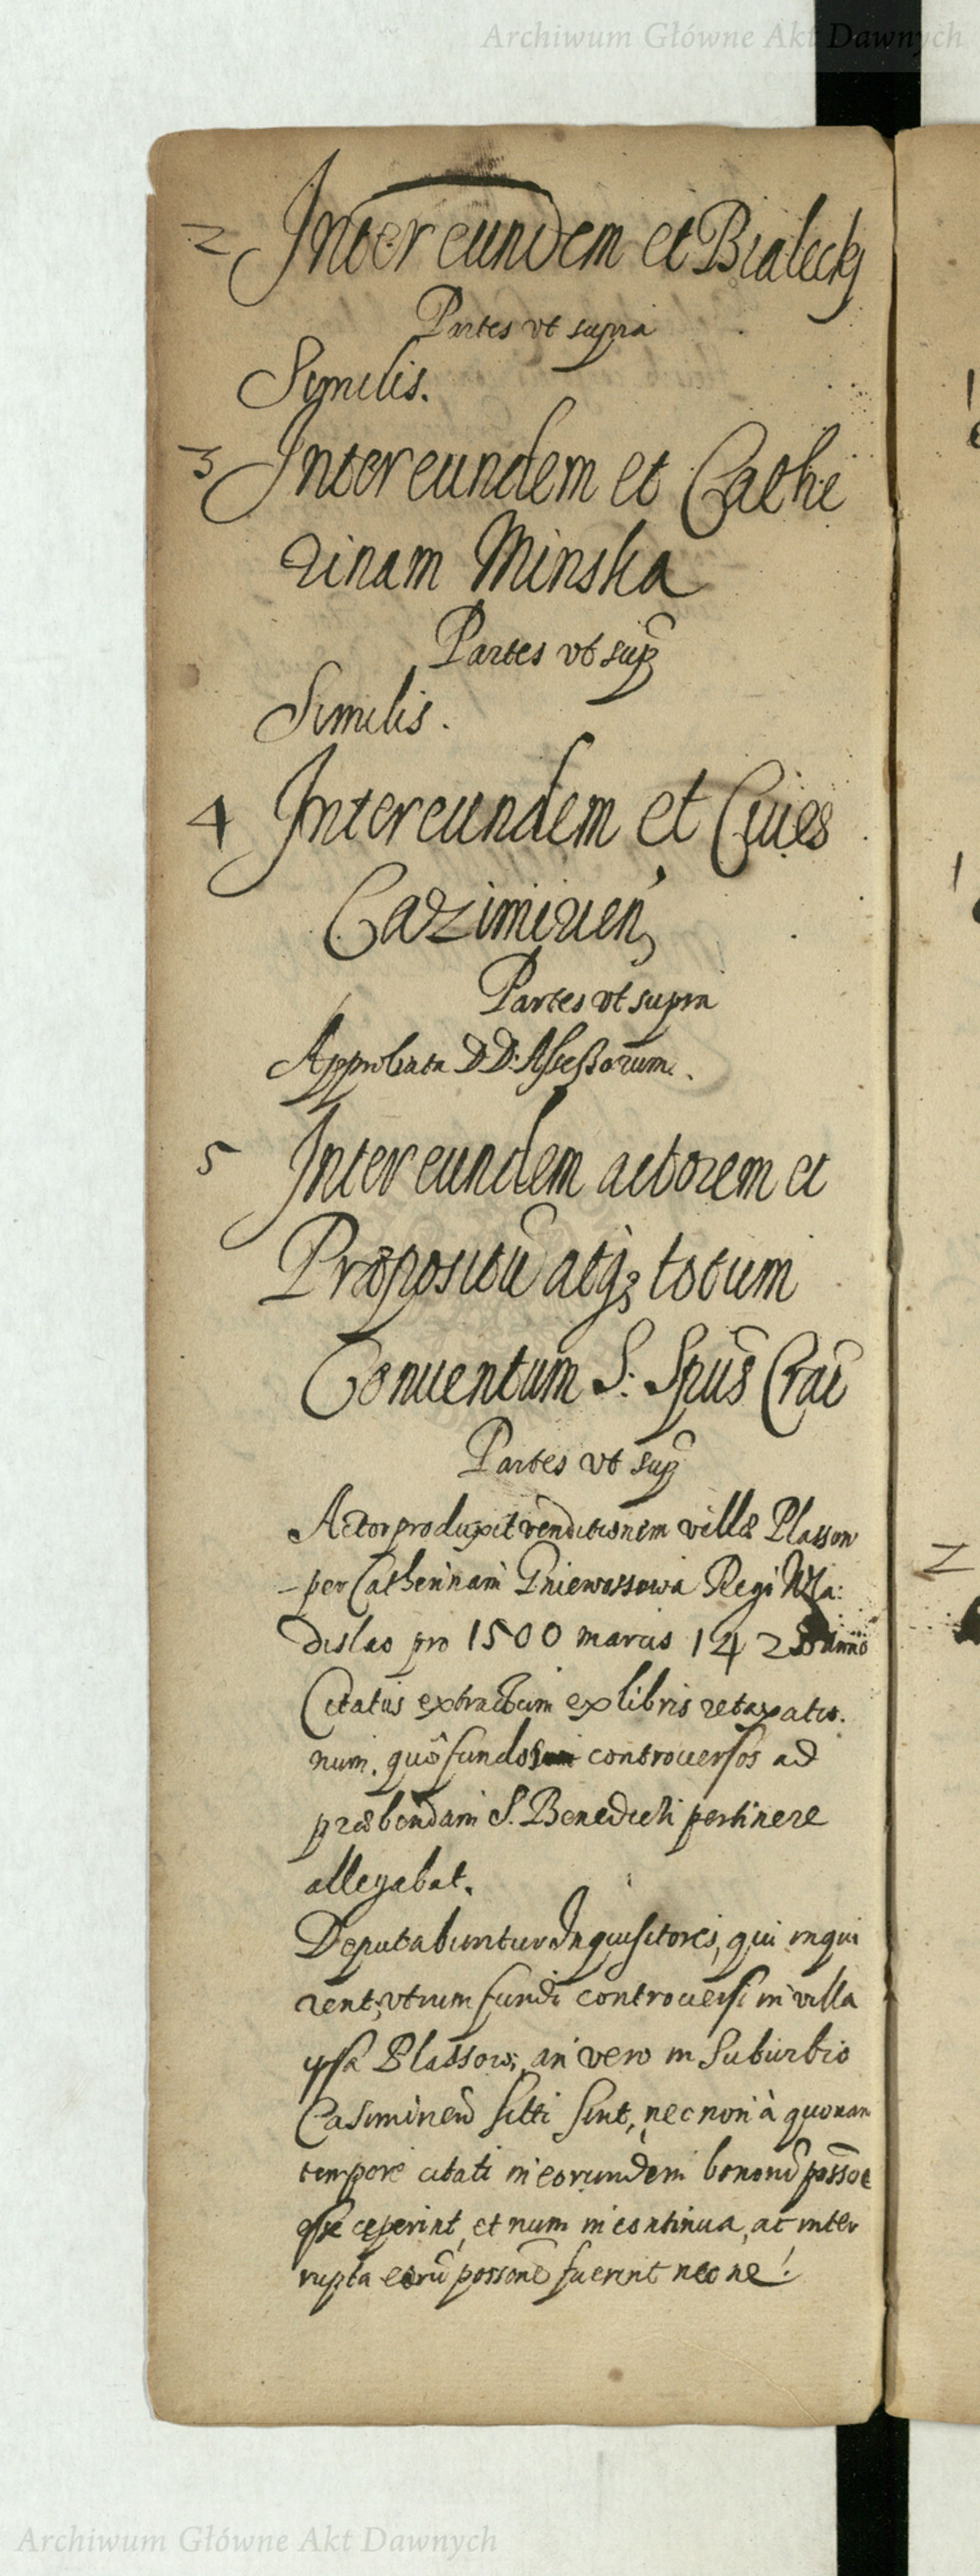 Archiwum Główne Akt Dawnych
2 Inter eundem et Bialecky
Partes vt supra
Similis.
3 Inter eundem et Cathe
rinam Minska
Partes vt sup
Similis.
4 Inter eundem et Ciues
Cazimirien,
Partes vt supra
Approbata D D: Assessorum.
5 Inter eundem actorem et
Præpositũ atq; totum
Conuentum S: Spũs Crac̃
Partes vt sup
Actor produxit venditionem villæ Plassow
per Catherinam Gniewossowa Regi Wla:
dislao pro 1500 marcis anno
Citatus extractum ex libris retaxatio.
num, quô fundos controuersos ad
præbendam S. Benedicti pertinere
allegabat.
Deputabuntur Inquisitores, qui inqui
rent, vtrum fundi controuersi in villa
ipsa Plassow, an vero in Suburbio
Casimirien̄ sitti sint, nec non à quonam
tempore citati in eorundem bonorũ possõe
esse ceperint, et num in continua, ac inter
rupta eorũ possone fuerint nec ne!
Archiwum Główne Akt Dawnych